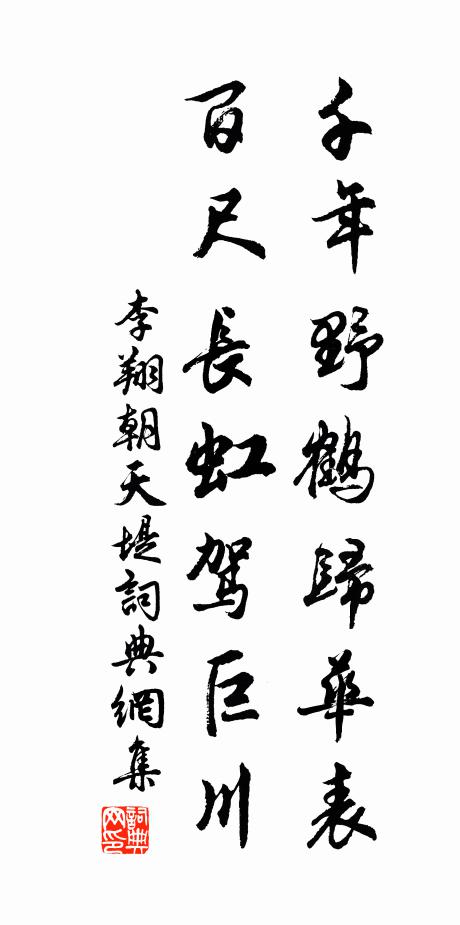 千年野鶴歸華表
百尺長虹駕巨川
李翔朝天堤詞典網集
詞典网印